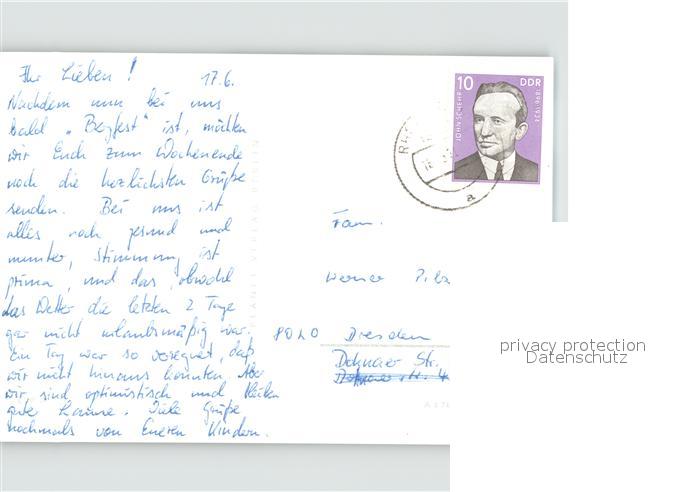 Ihr Lieben! 17.6.
Nachdem nun bei uns
bald „Bergfest" ist, möchten
wir Euch zum Wochenende
noch die herzlichsten Grüße
senden. Bei uns ist
alles noch gesund und
munter, Stimmung ist
prima, und das, obwohl
das Wetter die letzten 2 Tage
gar nicht urlaubsmäßig war.
Ein Tag war so verregnet, daß
wir nicht heraus konnten. Aber
wir sind optimistisch und
gute Laune. Viele Grüße
nochmals von Eueren Kindern.
PLANET-VERLAG BERLIN
10 DDR
JOHN SCHEHR
1896-1934
a
Fam.
Werner
Dresden
Dohnaer Str.
privacy protection
Datenschutz